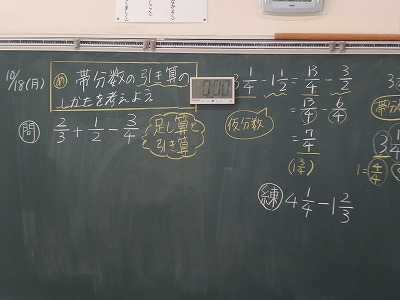 10/18(月)
め 帯分数の引き算の
しかたを考えよう。
問 2/3 + 1/2 - 3/4
足し算と
引き算
3 1/4 - 1 1/2 = 13/4 - 3/2
= 13/4 - 6/4
仮分数
= 7/4
(1 3/4)
練 4 1/4 - 1 2/3
帯分
3 1/4
1 = 4/4